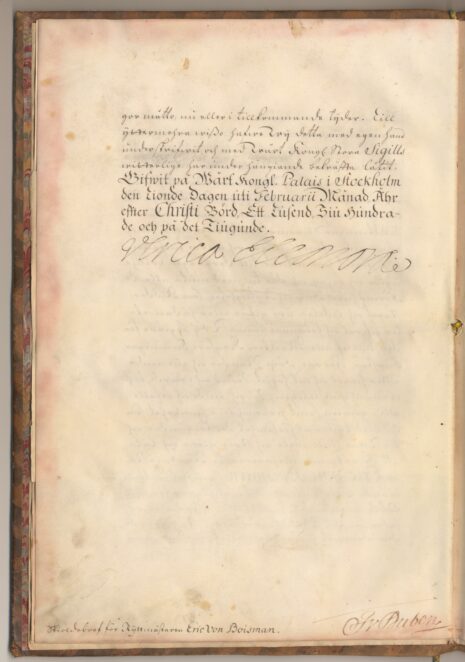 gör måtte, nu eller i tillkommande tyder. Till
yttermehra wißo hafwe Wÿ detta med egen hand
underskrifwit och med Wårt Kongl. Stora Sigills
witterligit här under hängiande bekräfta låtit.
Gifwit på Wårt Kongl. Palais i Stockholm
den Tionde Dagen uti Februarii Månad, Åhr
effter Christi Börd, Ett Tusend, Siu Hundra-
de och på det Tiugunde.
Ulrica Eleonora
Skiöldebref för Ryttmästaren Eric von Boisman.
Düben